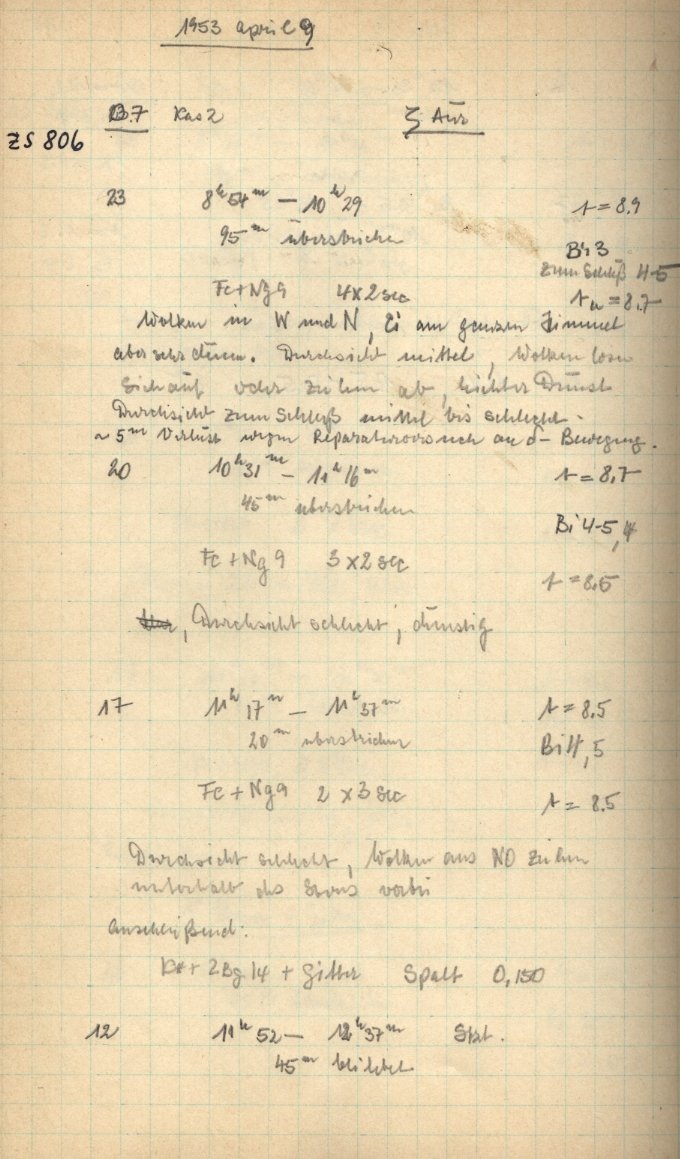 1953 April 9
B.7 Kas 2 ζ Aur
ZS 806
23 8ʰ 54ᵐ — 10ʰ 29 t = 8.9
95ᵐ überstrichen Bi 3
zum Schluß 4-5
Fe + Ng 9 4 x 2 sec tᵤ = 8.7
Wolken in W und N, Ci am ganzen Himmel
aber sehr dünn. Durchsicht mittel, Wolken lösen
sich auf oder ziehen ab, leichter Dunst
Durchsicht zum Schluß mittel bis schlecht.
~ 5ᵐ Verlust wegen Reparaturversuch an δ- Bewegung.
20 10ʰ 31ᵐ — 11ʰ 16ᵐ t = 8.7
45ᵐ überstrichen
Bi 4-5, 4
Fe + Ng 9 3 x 2 sec
t = 8.5
, Durchsicht schlecht, dunstig
17 11ʰ 17ᵐ — 11ʰ 37ᵐ t = 8.5
20ᵐ überstrichen Bi 4, 5
Fe + Ng 9 2 x 3 sec t = 8.5
Durchsicht schlecht, Wolken aus NO ziehen
unterhalb des Sterns vorbei
Anschließend:
+ 2 Bg 14 + Gitter Spalt 0,150
12 11ʰ 52 — 12ʰ 37ᵐ Stzt.
45ᵐ belichtet